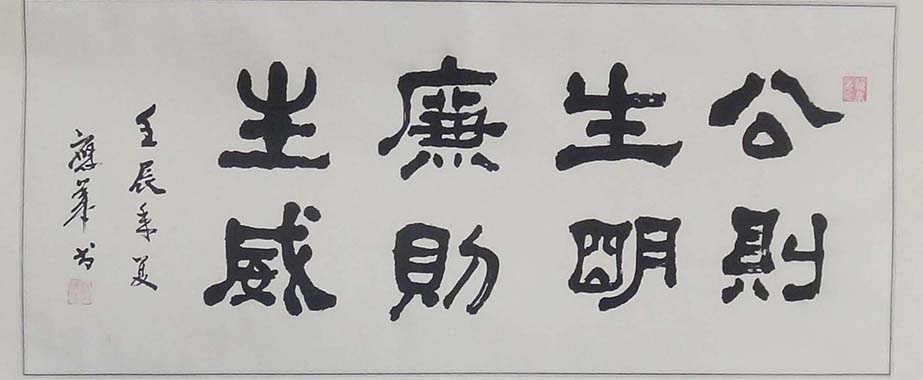 公則
生明
廉則
生威
壬辰年夏
應華书